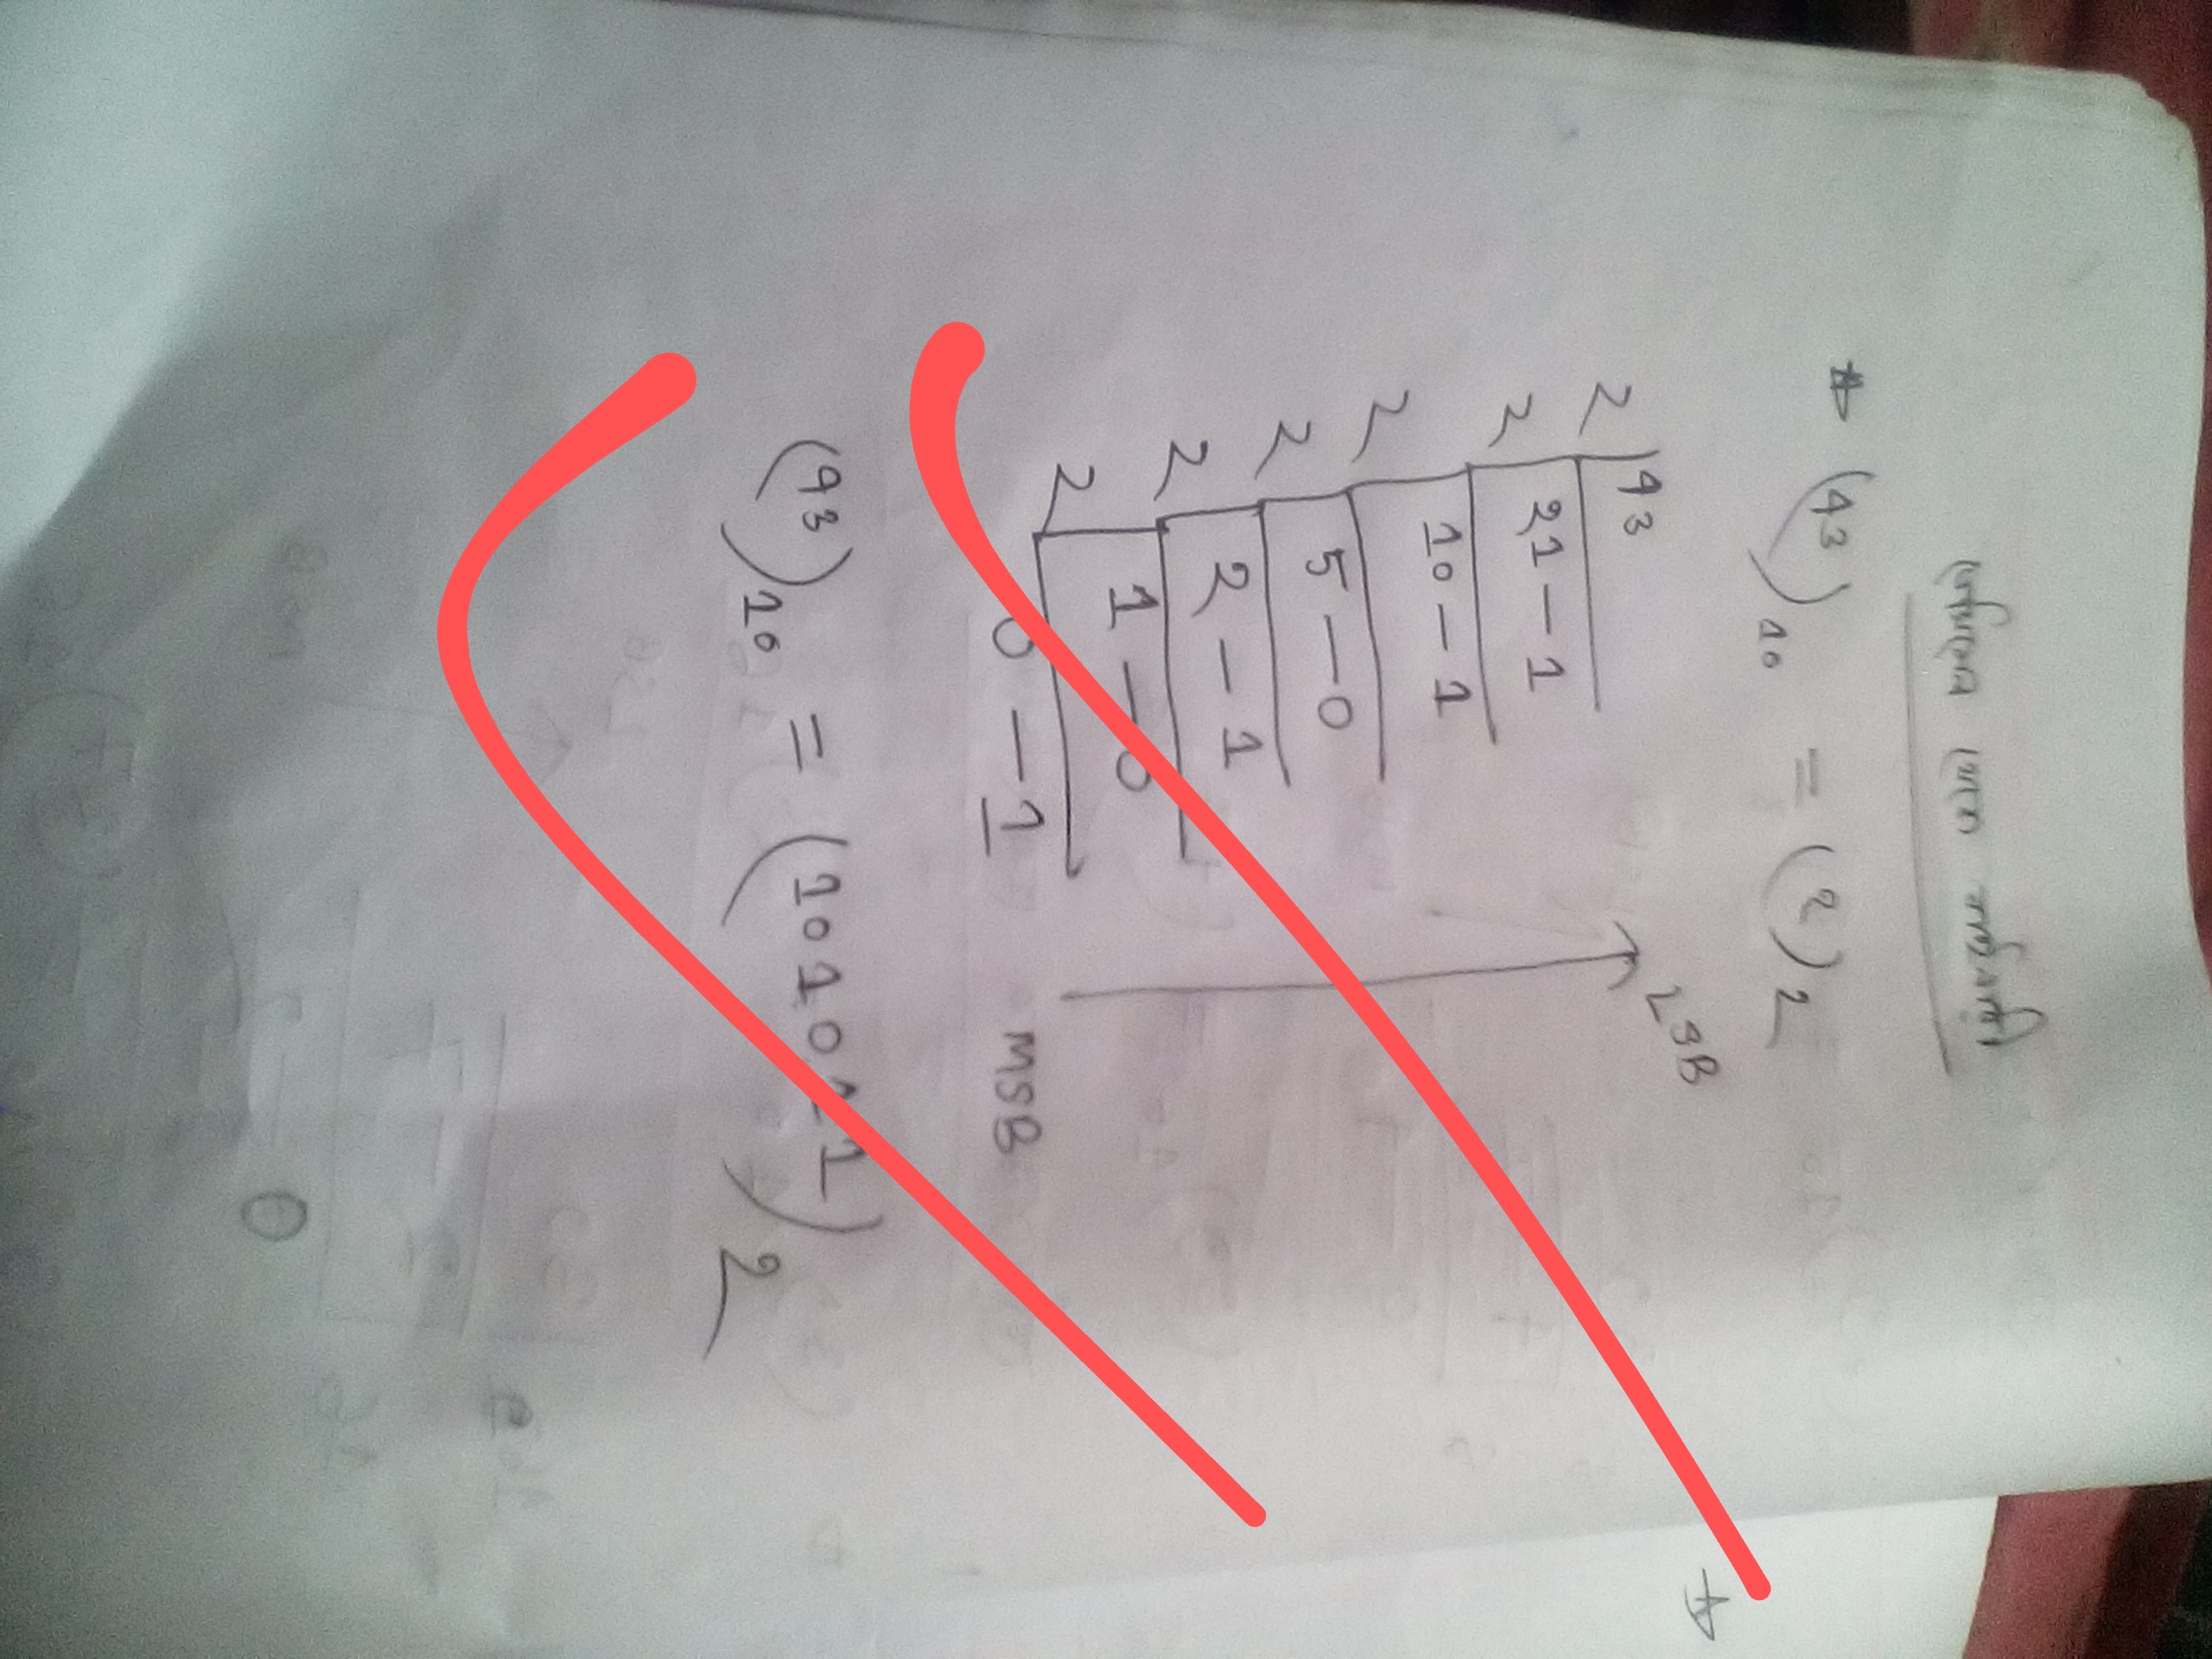 দশমিক থেকে বাইনারি
* (43)₁₀ = (?)₂
2 | 43
2 | 21 — 1
2 | 10 — 1
2 | 5 — 0
2 | 2 — 1
2 | 1 — 0
0 — 1
LSB
MSB
(43)₁₀ = (101011)₂